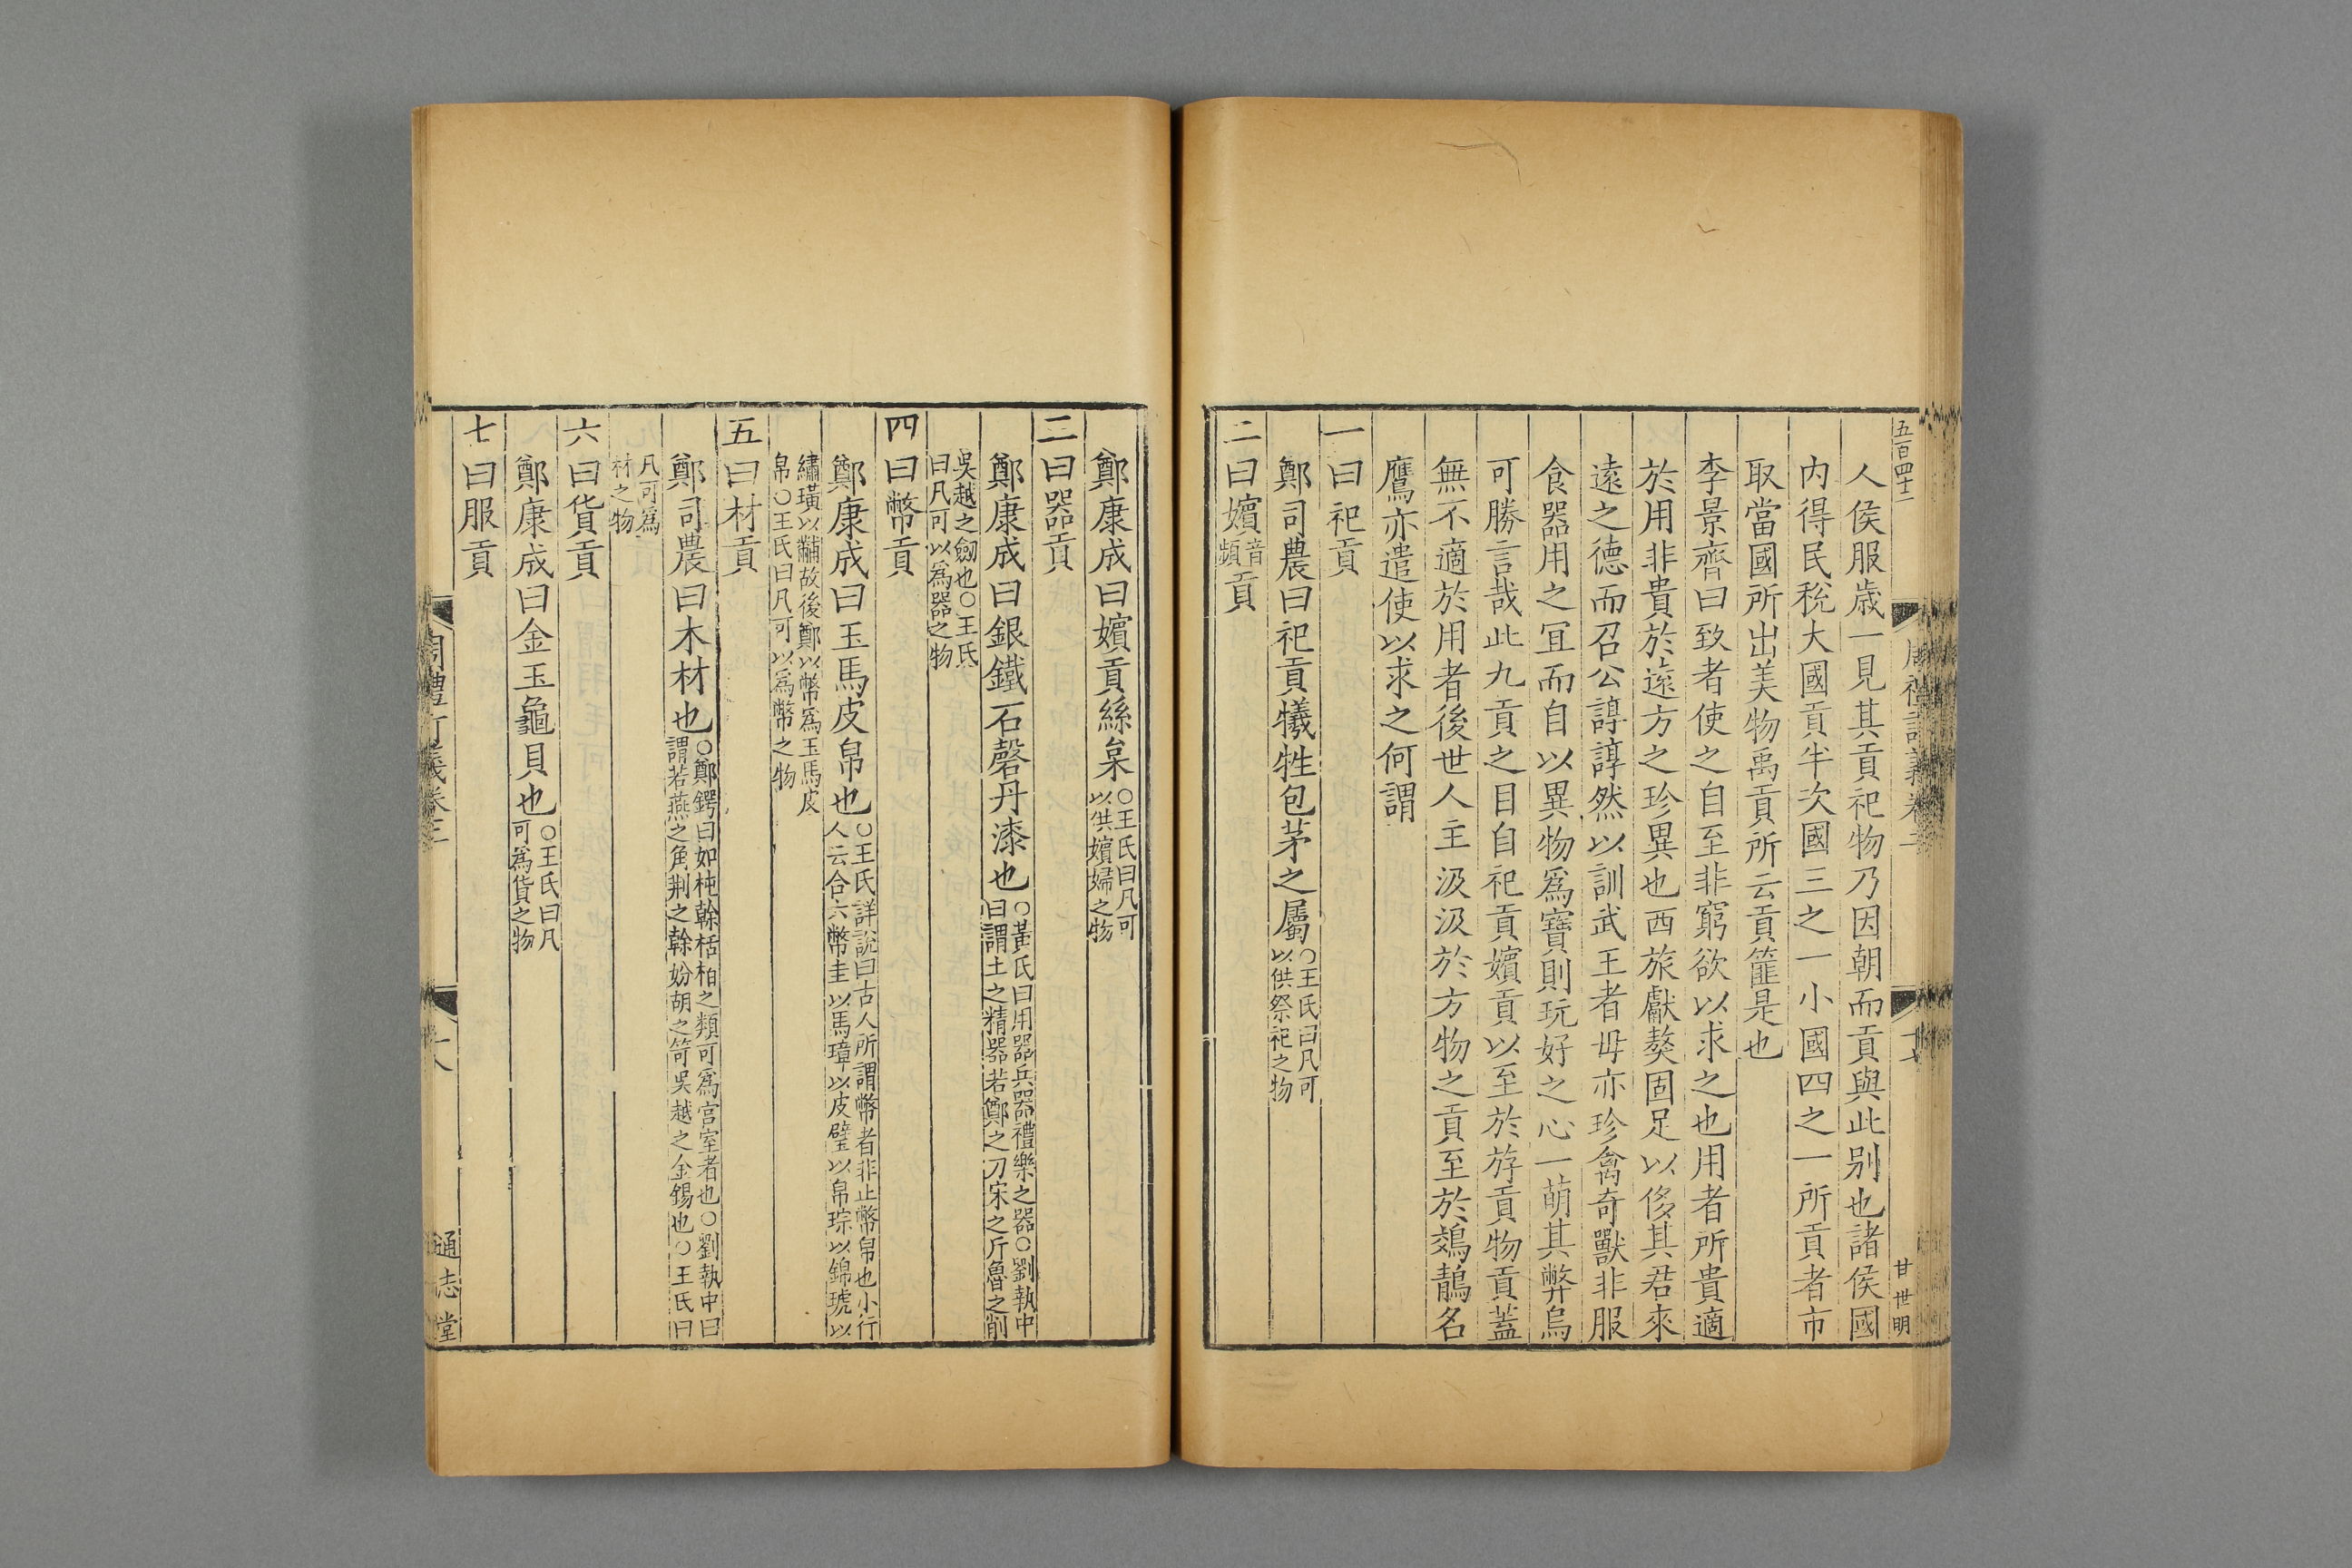 五百四十二
甘世明
人侯服歲一見其貢祀物乃因朝而貢與此别也諸侯國
内得民稅大國貢半次國三之一小國四之一所貢者市
取當國所出美物禹貢所云貢篚是也
李景齊曰致者使之自至非窮欲以求之也用者所貴適
於用非貴於遠方之珍異也西旅獻獒固足以侈其君來
遠之德而召公諄諄然以訓武王者毋亦珍禽奇獸非服
食器用之冝而自以異物爲寶則玩好之心一萌其弊烏
可勝言哉此九貢之目自祀貢嬪貢以至於斿貢物貢蓋
無不適於用者後世人主汲汲於方物之貢至於鵁鶄名
鷹亦遣使以求之何謂
一曰祀貢
鄭司農曰祀貢犧牲包茅之屬○王氏曰凡可以供祭祀之物
二曰嬪音頻貢
鄭康成曰嬪貢絲枲○王氏曰凡可以供嬪婦之物
三曰器貢
鄭康成曰銀鐵石磬丹漆也○黃氏曰用器兵器禮樂之器○劉執中曰謂土之精器若鄭之刀宋之斤魯之削
吳越之劒也○王氏曰凡可以爲器之物
四曰幣貢
鄭康成曰玉馬皮帛也○王氏詳說曰古人所謂幣者非止幣帛也小行人云合六幣圭以馬璋以皮璧以帛琮以錦琥以
繡璜以黼故後鄭以幣爲玉馬皮帛○王氏曰凡可以爲幣之物
五曰材貢
鄭司農曰木材也○鄭鍔曰如杶榦栝柏之類可爲宫室者也○劉執中曰謂若燕之角荆之榦妢胡之笴吳越之金錫也○王氏曰
凡可爲材之物
六曰貨貢
鄭康成曰金玉龜貝也○王氏曰凡可爲貨之物
七曰服貢
通志堂